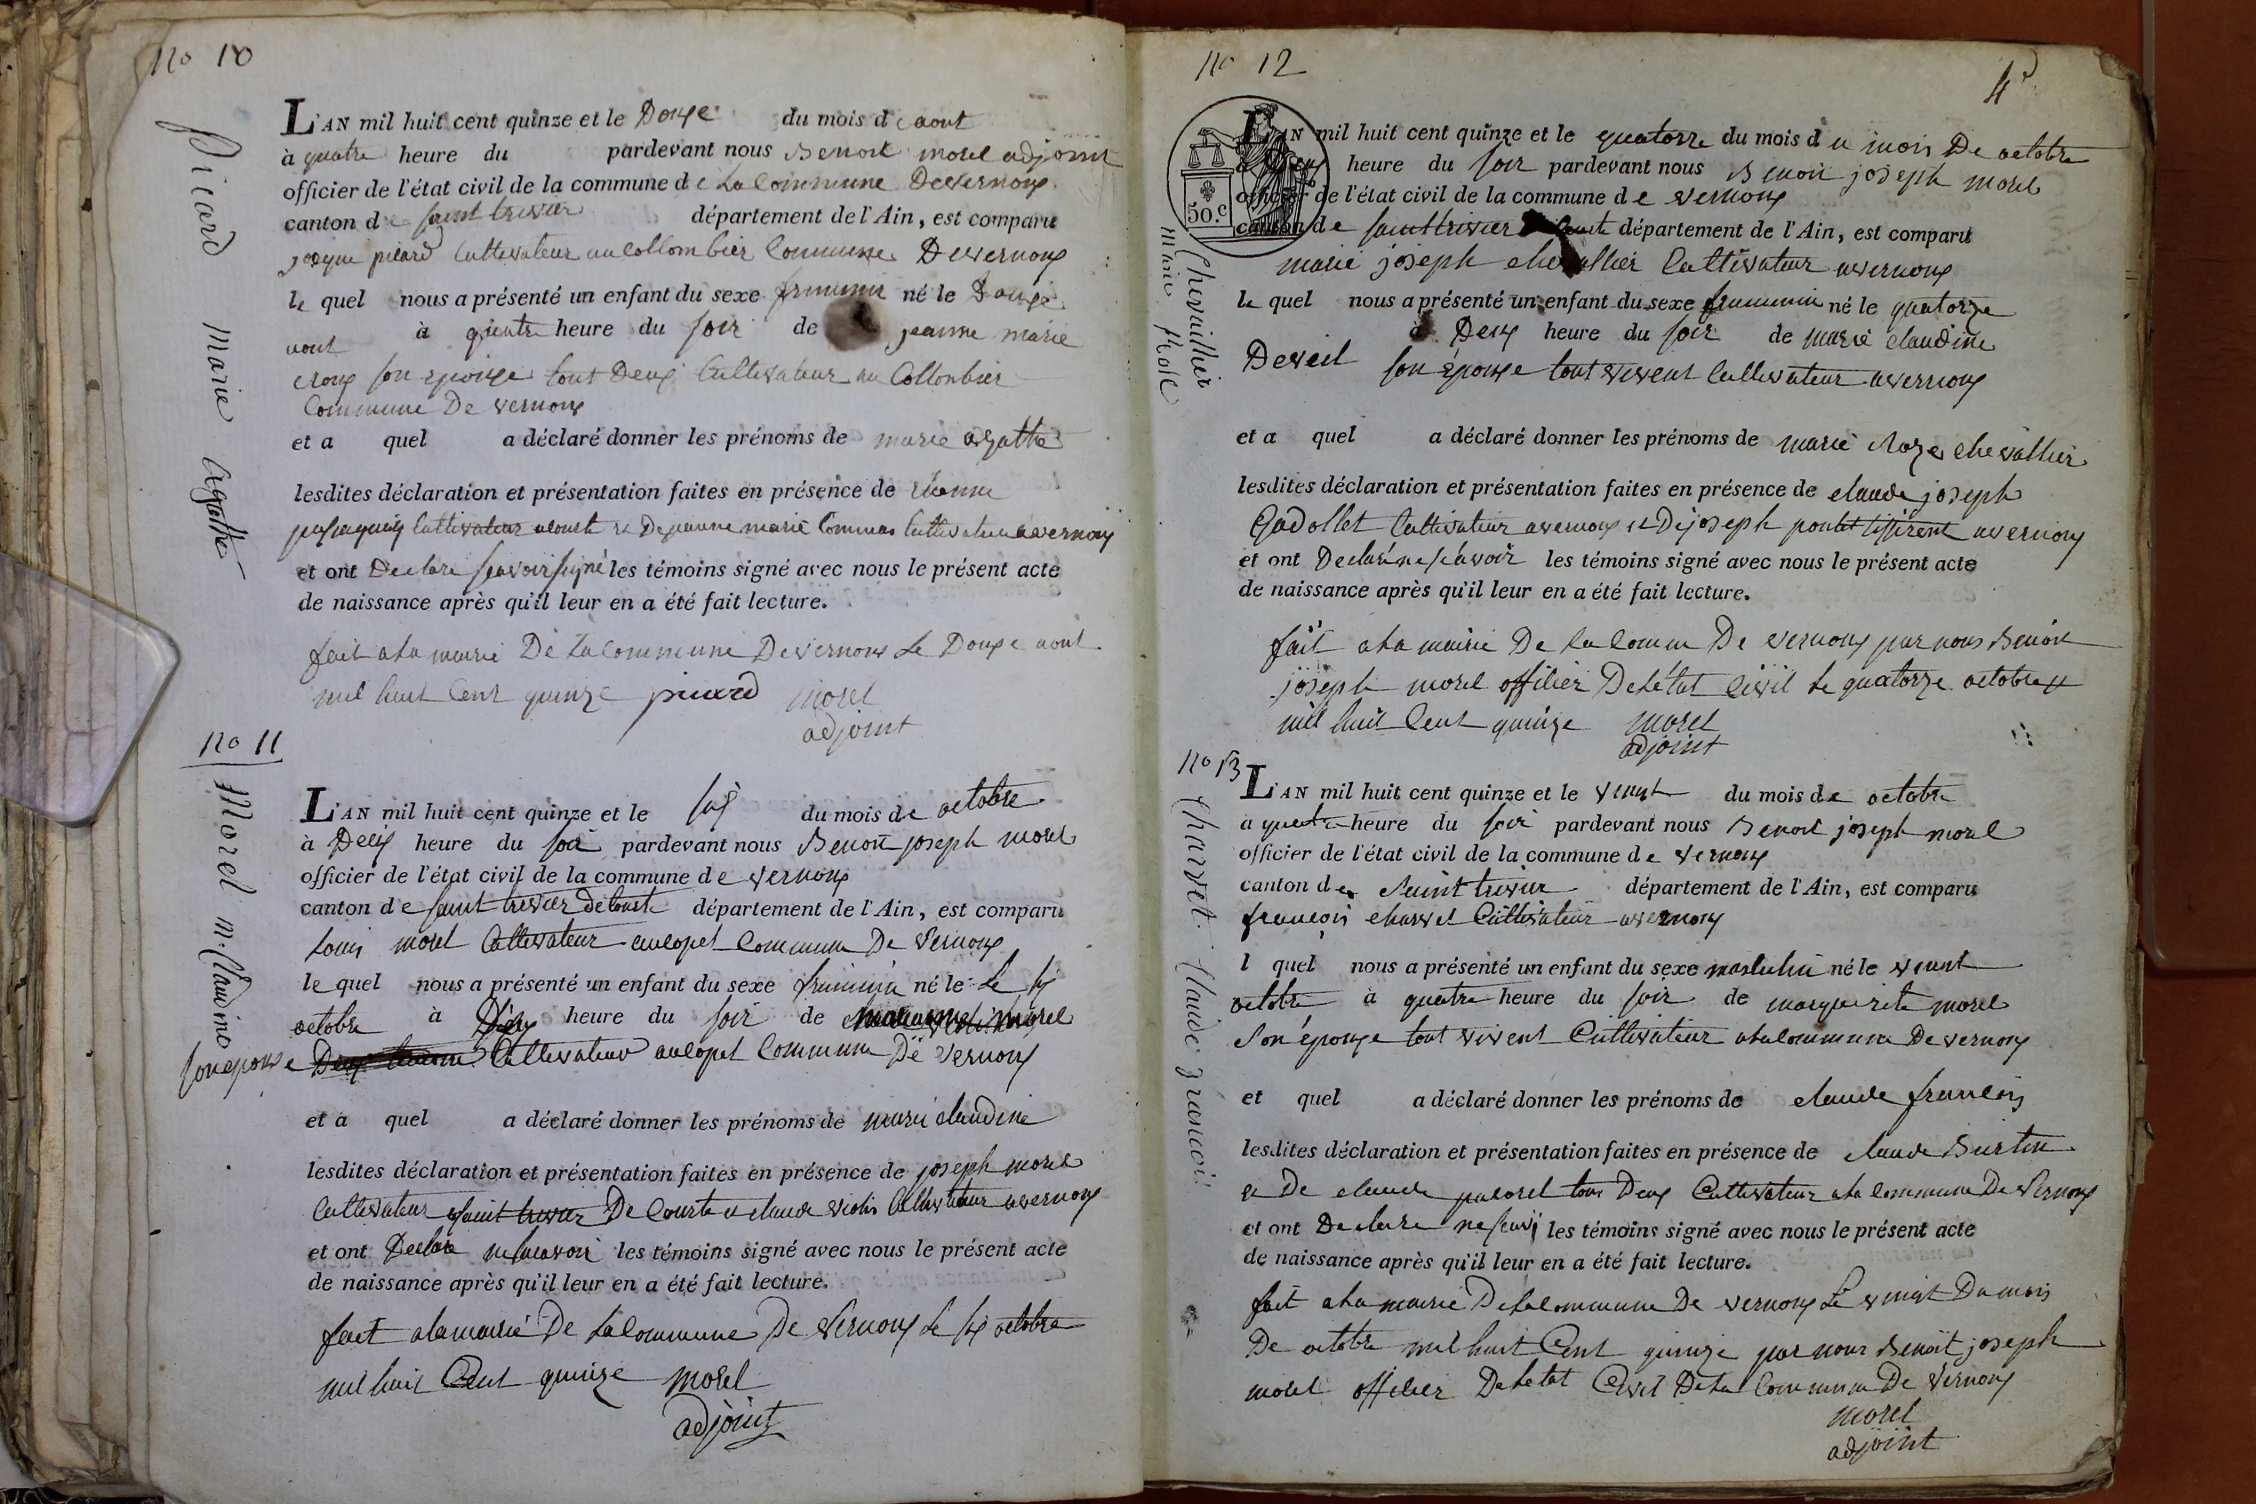 no 10
Picard Marie Agathe
L'AN mil huit cent quinze et le Douze du mois de aout
à quatre heure du pardevant nous Benoit morel adjoint
officier de l'état civil de la commune de La Commune De vernoux
canton de saint trivier département de l'Ain, est comparu
picard Cultivateur au Collombier Commune De vernoux
le quel nous a présenté un enfant du sexe né le Douze
aout à quatre heure du soir de jeanne marie
son epouse tout Deux Cultivateur au Collonbier
Commune De vernoux
et a quel a déclaré donner les prénoms de marie agathe
lesdites déclaration et présentation faites en présence de
Cultivateur a Courte et De jeanne marie Cultivateur a vernoux
et ont Declare scavoir signé les témoins signé avec nous le présent acte
de naissance après qu'il leur en a été fait lecture.
fait a la mairie De La Commune De vernoux Le Douze aout
mil huit Cent quinze picard morel
adjoint
no 11
Morel m. Claudine
L'AN mil huit cent quinze et le six du mois de octobre
à Deux heure du soir pardevant nous Benoit joseph morel
officier de l'état civil de la commune de vernoux
canton de saint trivier de Courte département de l'Ain, est comparu
Louis morel Cultivateur au Commune De Vernoux
le quel nous a présenté un enfant du sexe né le Le six
octobre à heure du soir de morel
son epouse Cultivateur au Commune De vernoux
et a quel a déclaré donner les prénoms de marie claudine
lesdites déclaration et présentation faites en présence de joseph morel
Cultivateur a saint trivier De Courte et claude violi Cultivateur a vernoux
et ont Declare ne scavoir les témoins signé avec nous le présent acte
de naissance après qu'il leur en a été fait lecture.
fait a la mairie De La Commune De Vernoux Le six octobre
mil huit Cent quinze morel
adjoint
no 12
4
50.c
Chevallier
marie Rose
L'AN mil huit cent quinze et le quatorze du mois du mois De octobre
à Deux heure du soir pardevant nous Benoit joseph morel
officier de l'état civil de la commune de vernoux
canton de saint trivier Courte département de l'Ain, est comparu
marie joseph chevallier Cultivateur a vernoux
le quel nous a présenté un enfant du sexe né le quatorze
à Deux heure du soir de marie claudine
Deveil son épouse tout vivent Cultivateur a vernoux
et a quel a déclaré donner les prénoms de marie Roze chevallier
lesdites déclaration et présentation faites en présence de claude joseph
Gadollet Cultivateur a vernoux et De joseph a vernoux
et ont Declaré ne scavoir les témoins signé avec nous le présent acte
de naissance après qu'il leur en a été fait lecture.
fait a la mairie De la Commu De vernoux par nous Benoit
joseph morel officier De Létat Civil Le quatorze octobre
mil huit Cent quinze morel
adjoint
no 13
Charvet Claude francois
L'AN mil huit cent quinze et le vinit du mois de octobre
a quatre heure du soir pardevant nous Benoit joseph morel
officier de l'état civil de la commune de vernoux
canton de Saint trivier département de l'Ain, est comparu
francois charvet Cultivateur a vernoux
l quel nous a présenté un enfant du sexe masculin né le vinit
octobre à quatre heure du soir de marguerite morel
son épouse tout vivent Cultivateur a la commune De vernoux
et quel a déclaré donner les prénoms de claude francois
lesdites déclaration et présentation faites en présence de claude Burtin
et De claude tous Deux Cultivateur a la Commune De Vernoux
et ont Declare les témoins signé avec nous le présent acte
de naissance après qu'il leur en a été fait lecture.
fait a la mairie De La Commune De vernoux Le vinit Du mois
De octobre mil huit Cent quinze par nous Benoit joseph
morel officier De Letat Civil De La Commune De Vernoux
morel
adjoint